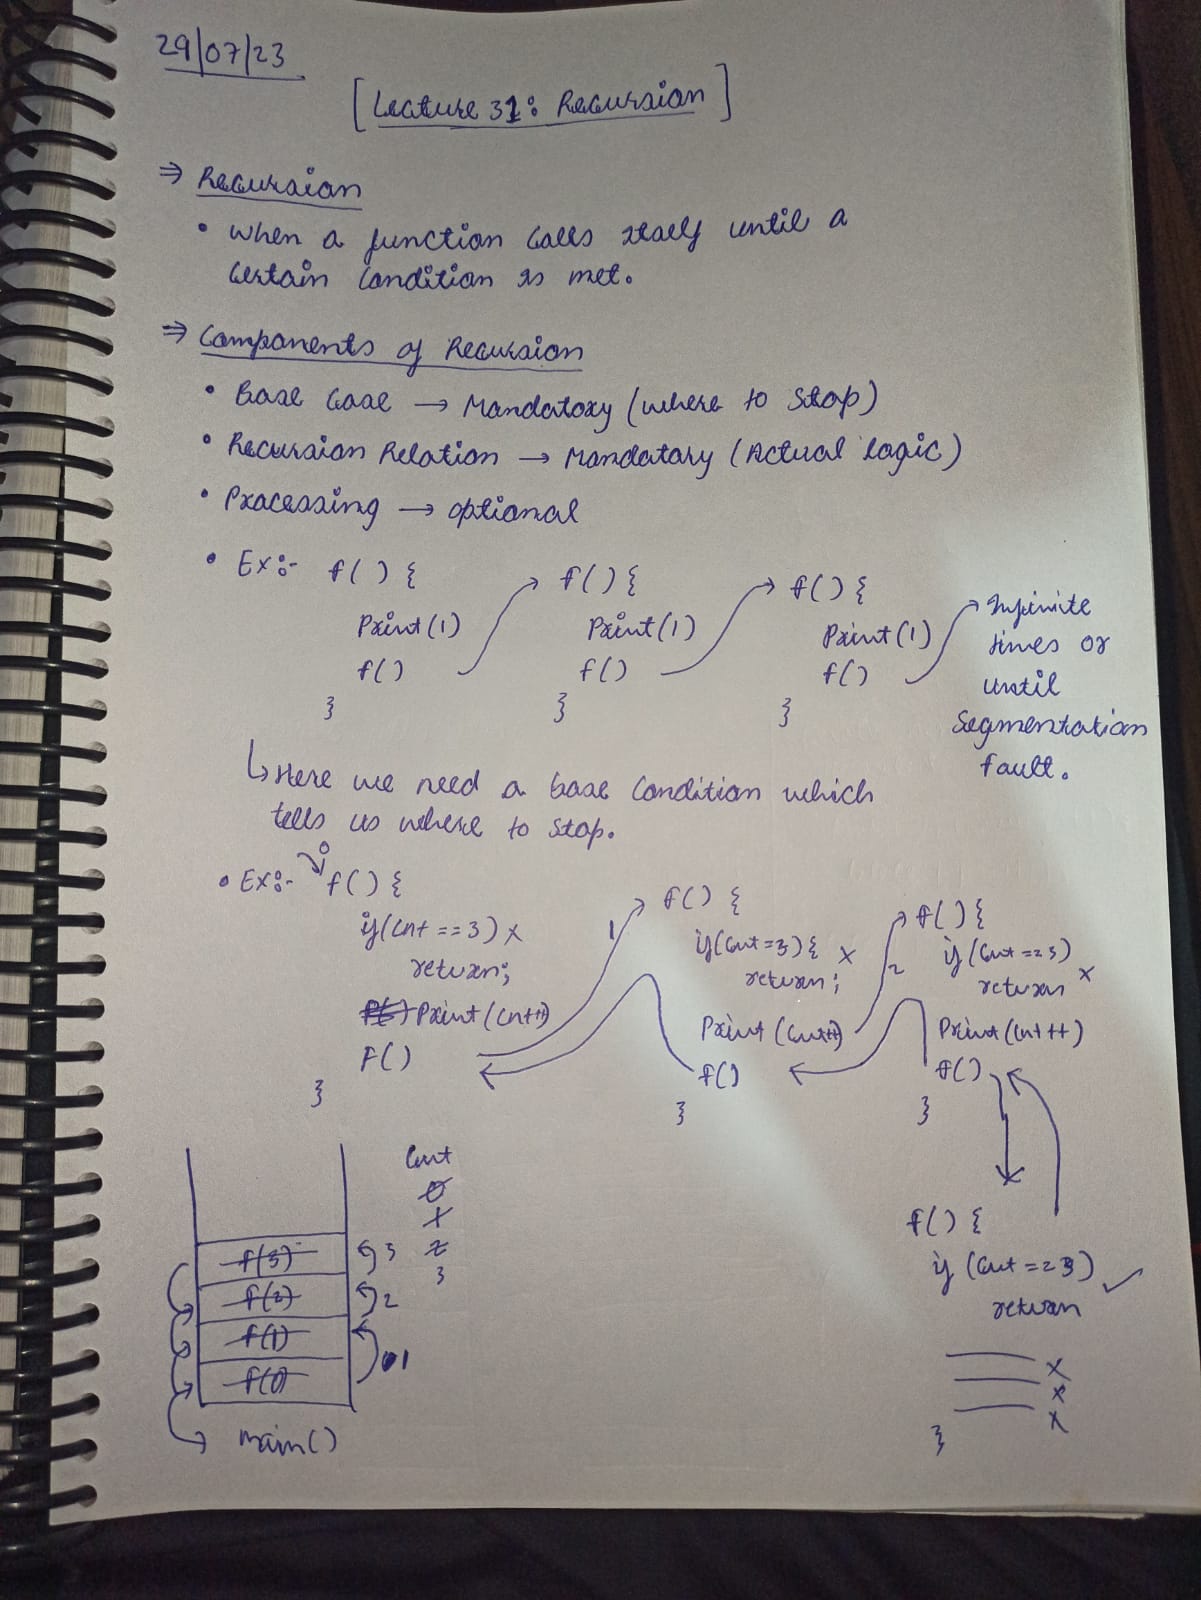 29/07/23
[Lecture 31: Recursion]
⇒ Recursion
• When a function calls itself until a
certain condition is met.
⇒ Components of Recursion
• Base Case → Mandatory (where to stop)
• Recursion Relation → Mandatory (Actual logic)
• Processing → optional
• Ex:- f() { f() { f() { Infinite
Print(1) Print(1) Print(1) times or
f() f() f() until
} } } Segmentation
fault.
↳ Here we need a base condition which
tells us where to stop.
• Ex:- 0 f() { f() { f() {
if(cnt == 3) x 1 if(cnt=3){ x 2 if(cnt==3)
return; return; return x
Print(cnt++) Print(cnt++) Print(cnt++)
F() f() f()
} } }
cnt
0
1
f(3) 3 2
3
f(2) 2
f(1)
f(0) 01
main()
f() {
if (cnt == 3) ✓
return
x
x
x
}